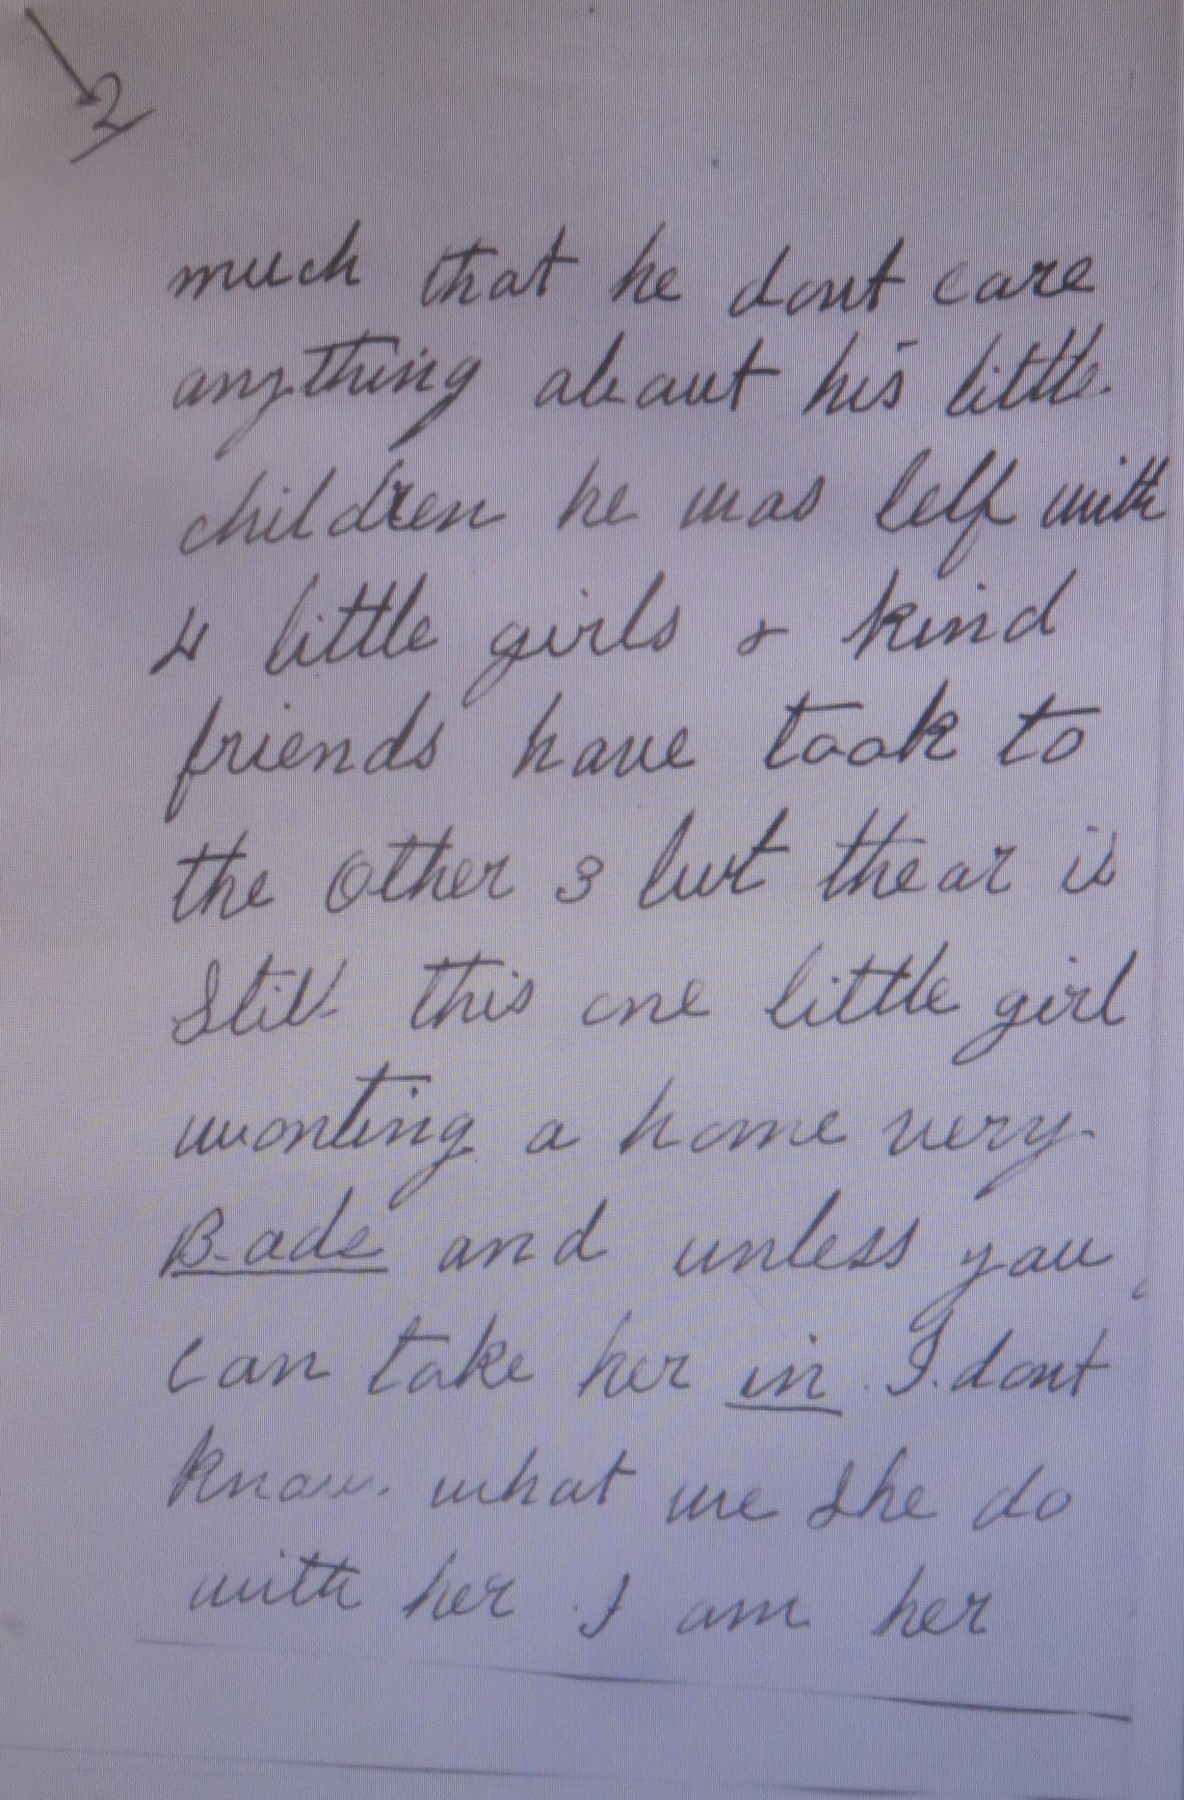 2
much that he dont care
anything about his little
children he was lelf with
4 little girls & kind
friends have took to
the other 3 but thear is
Still this one little girl
wonting a home very
Bade and unless you
can take her in I dont
know what we she do
with her I am her